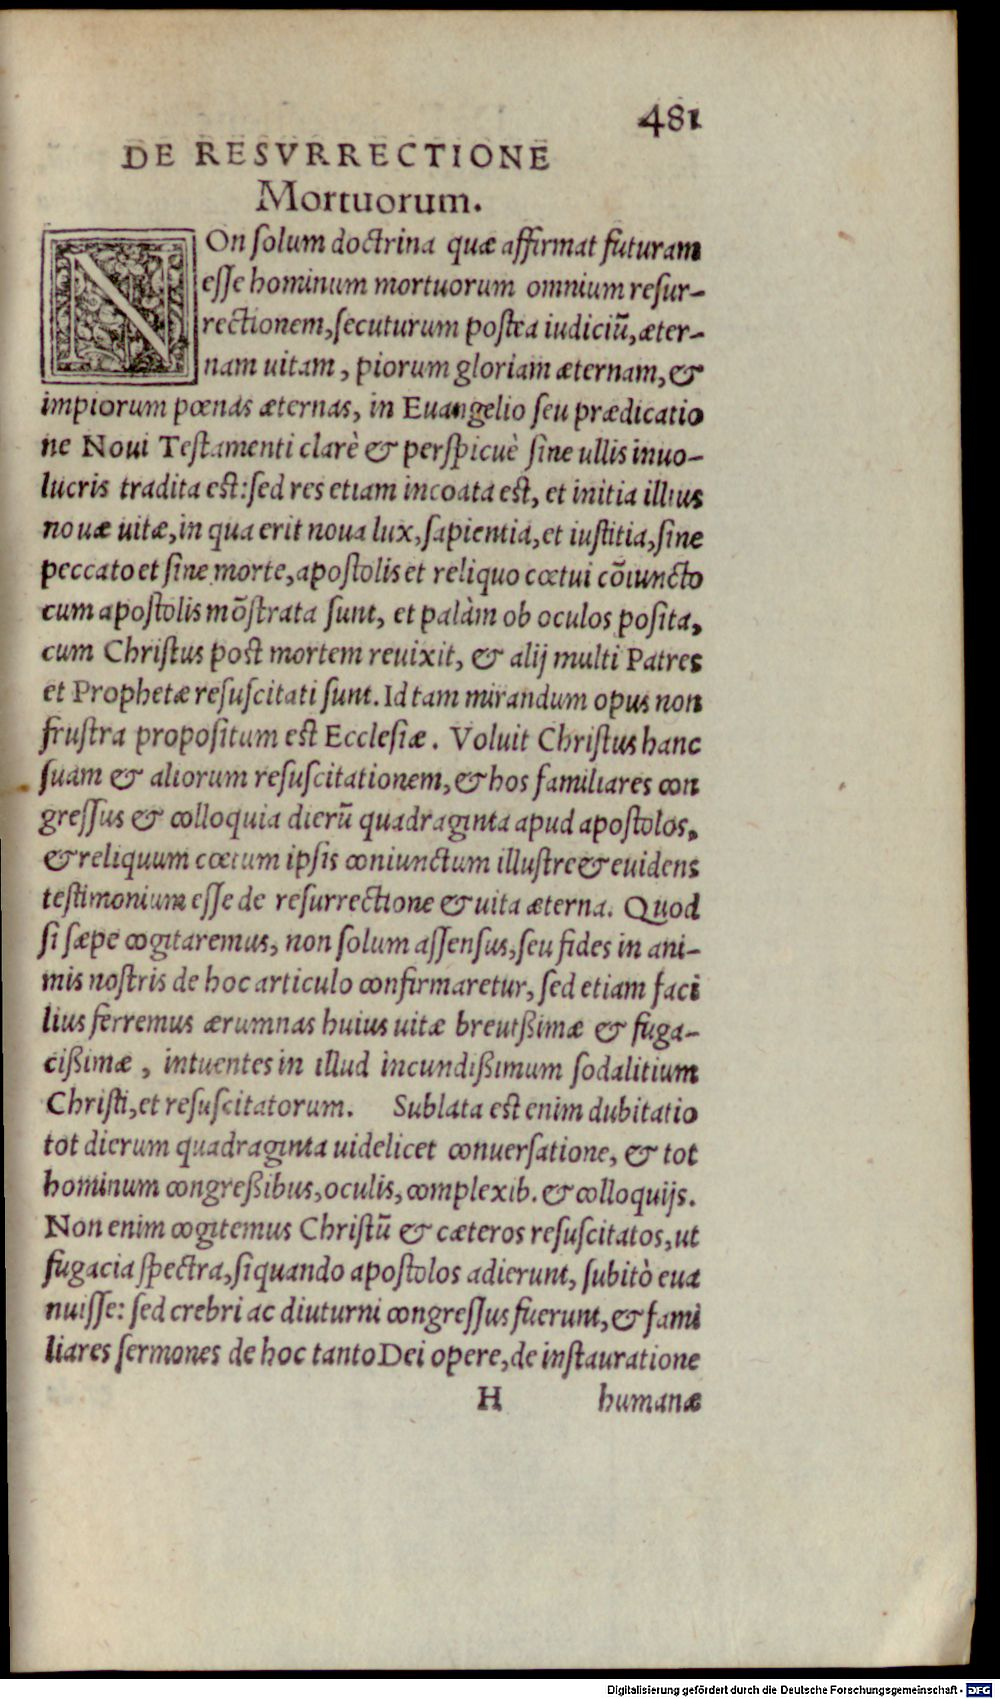 481
DE RESVRRECTIONE
Mortuorum.
NOn ſolum doctrina quæ affirmat futuram
eſſe hominum mortuorum omnium reſur-
rectionem, ſecuturum poſtea iudiciū, æter-
nam uitam, piorum gloriam æternam, &
impiorum pœnas æternas, in Euangelio ſeu prædicatio
ne Noui Teſtamenti clarè & perſpicuè ſine ullis inuo-
lucris tradita eſt: ſed res etiam incoata eſt, et initia illius
nouæ uitæ, in qua erit noua lux, ſapientia, et iuſtitia, ſine
peccato et ſine morte, apoſtolis et reliquo cœtui cōiuncto
cum apoſtolis mōſtrata ſunt, et palàm ob oculos poſita,
cum Chriſtus poſt mortem reuixit, & alij multi Patres
et Prophetæ reſuſcitati ſunt. Id tam mirandum opus non
fruſtra propoſitum eſt Eccleſiæ. Voluit Chriſtus hanc
ſuam & aliorum reſuſcitationem, & hos familiares con
greſſus & colloquia dierū quadraginta apud apoſtolos,
& reliquum cœtum ipſis coniunctum illuſtre & euidens
teſtimonium eſſe de reſurrectione & uita æterna. Quod
ſi ſæpe cogitaremus, non ſolum aſſenſus, ſeu fides in ani-
mis noſtris de hoc articulo confirmaretur, ſed etiam faci
lius ferremus ærumnas huius uitæ breuißimæ & fuga-
cißimæ, intuentes in illud incundißimum ſodalitium
Chriſti, et reſuſcitatorum. Sublata eſt enim dubitatio
tot dierum quadraginta uidelicet conuerſatione, & tot
hominum congreßibus, oculis, complexib. & colloquijs.
Non enim cogitemus Chriſtū & cæteros reſuſcitatos, ut
fugacia ſpectra, ſiquando apoſtolos adierunt, ſubitò eua
nuiſſe: ſed crebri ac diuturni congreſſus fuerunt, & fami
liares ſermones de hoc tanto Dei opere, de inſtauratione
H humanæ
Digitalisierung gefördert durch die Deutsche Forschungsgemeinschaft - DFG